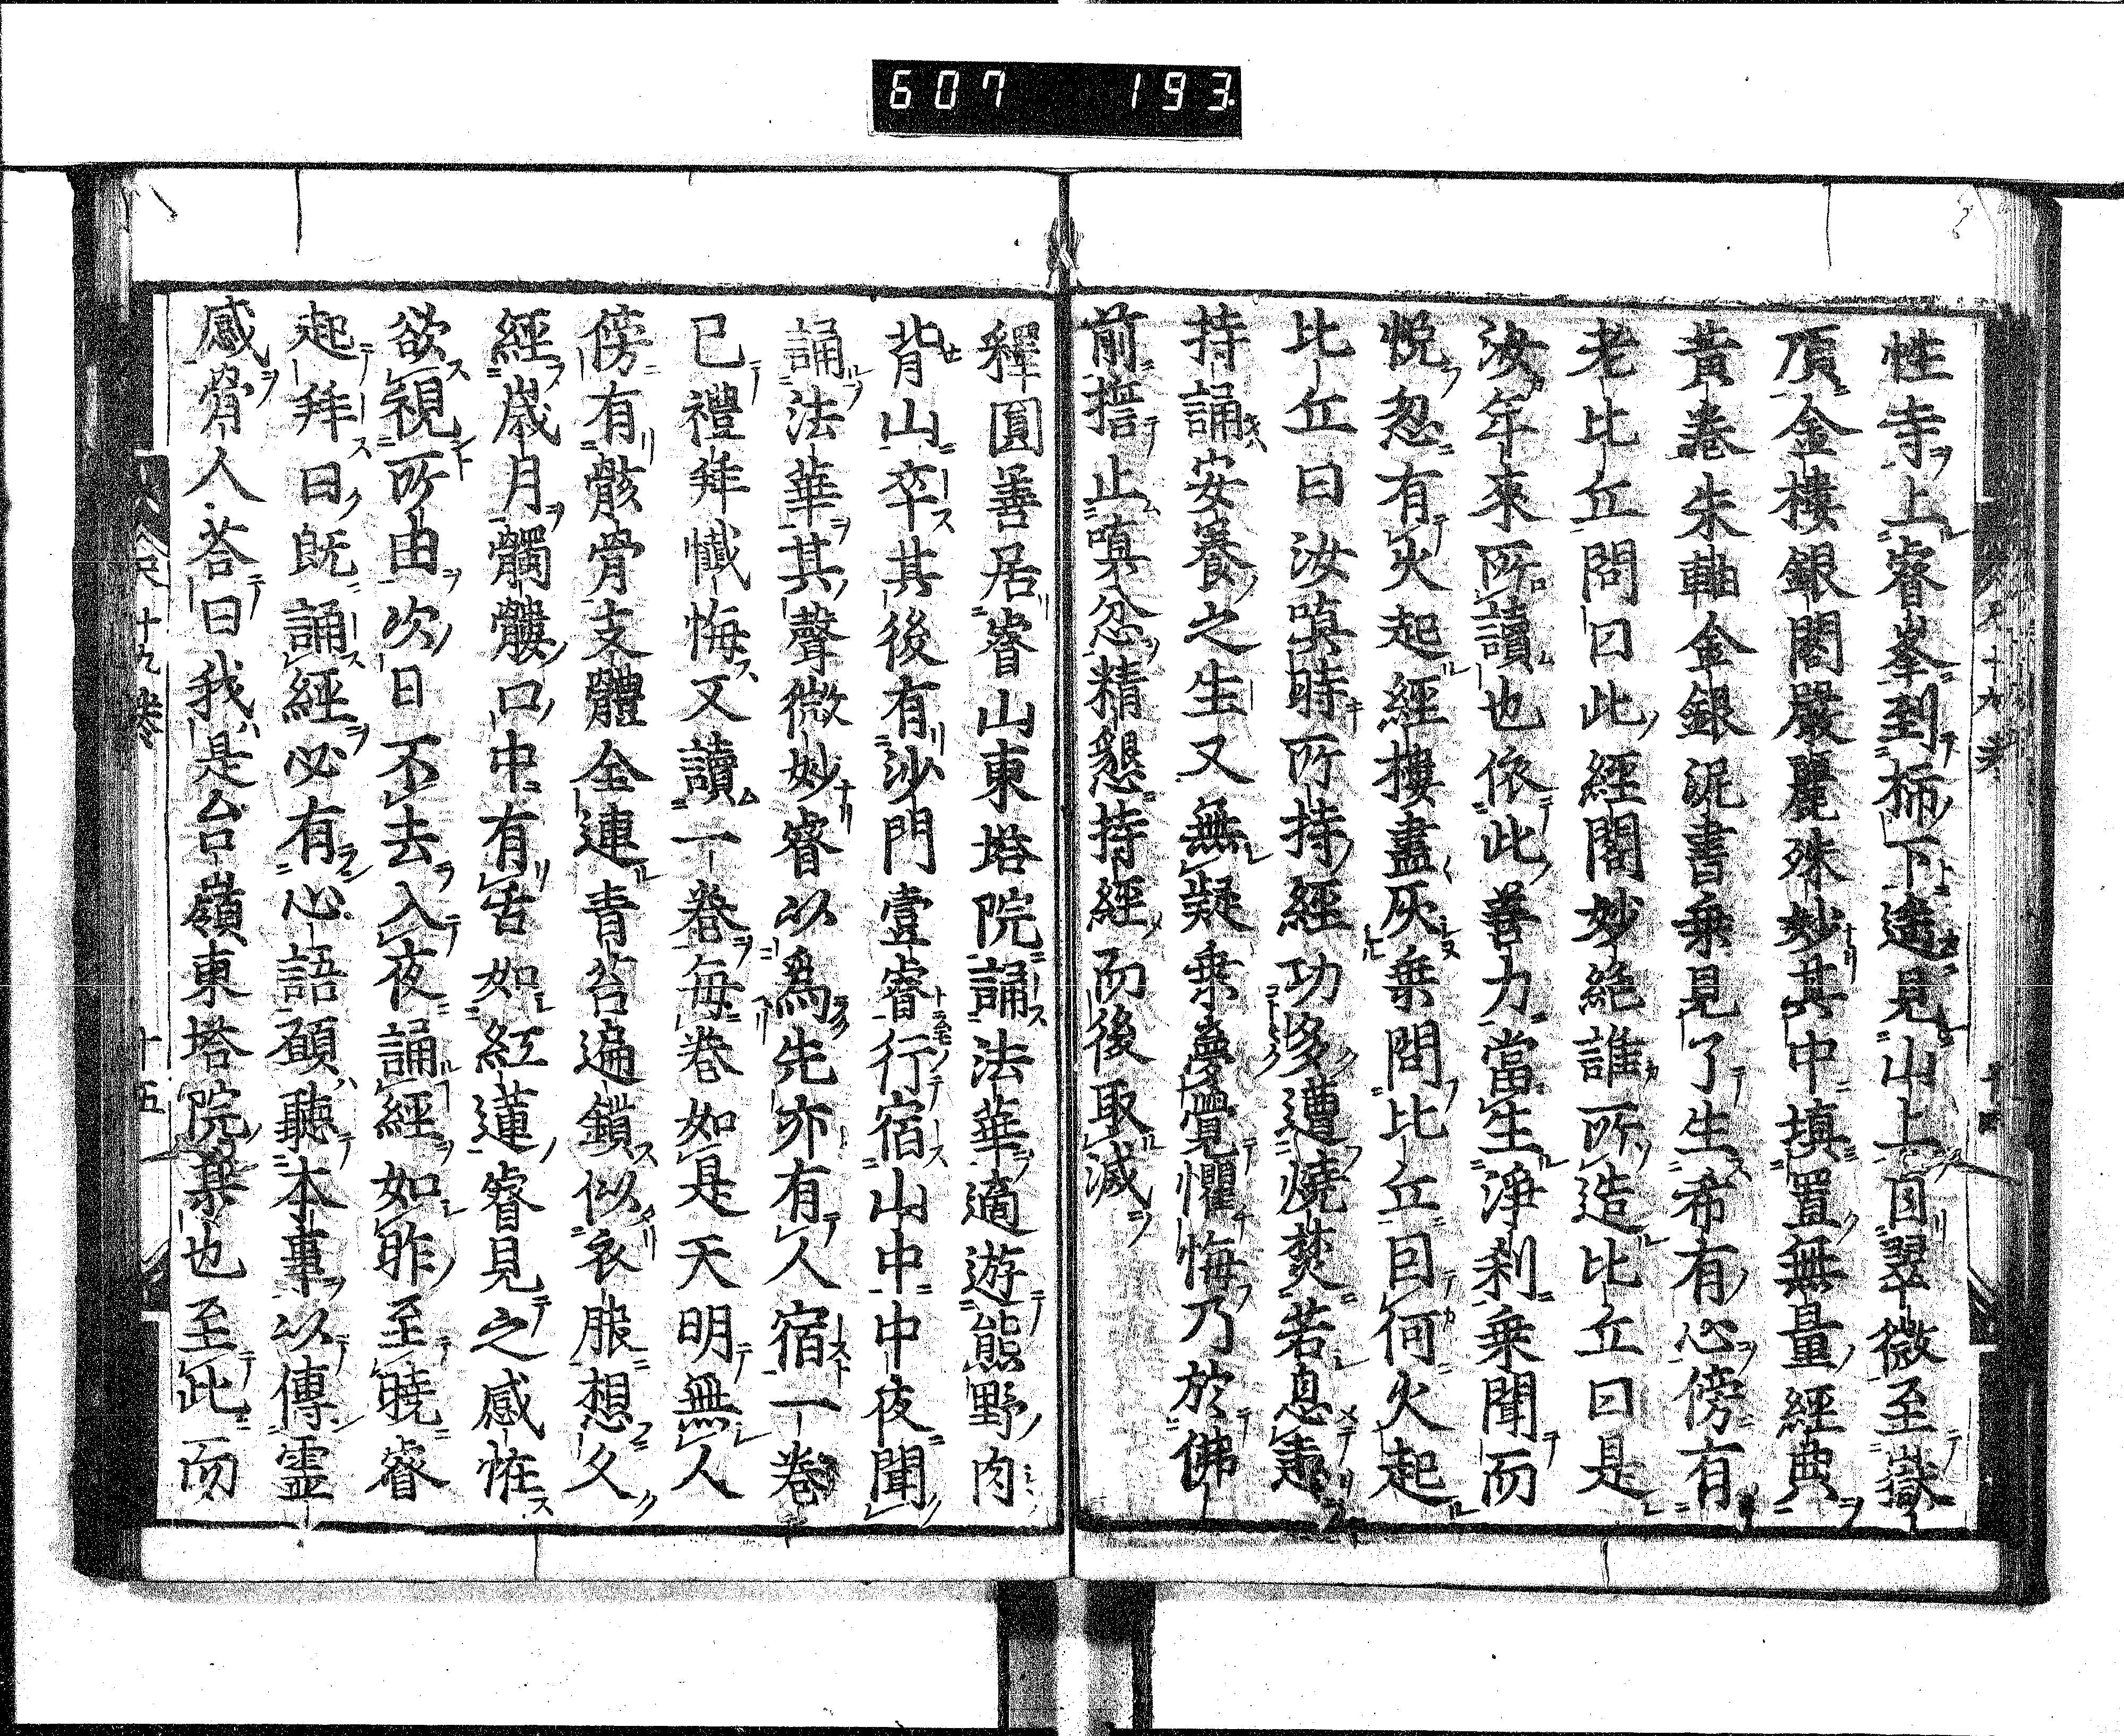 607 193
性寺上睿峯到柿下遙見山上因翠微至嶽
頂金樓銀閣嚴麗殊妙其中填置無量經典
黃卷朱軸金銀泥書乗見了生希有心傍有
老比丘問曰此經閣妙絶誰所造比丘曰是
汝年來所讀也依此善力當生淨刹乗聞而
悦忽有火起經樓盡灰乗問比丘因何火起
比丘曰汝嗔時所持經功多遭燒焚若息恚
持誦安養之生又無疑乗夢覺懼悔乃於佛
前誓止嗔忿精懇持經而後取滅
釋圓善居睿山東塔院誦法華適遊熊野肉
背山卒其後有沙門壹睿行宿山中中夜聞
誦法華其聲微妙睿以爲先亦有人宿一卷
已禮拜懺悔又讀一卷每卷如是天明無人
傍有骸骨支體全連青苔遍鎖似衣服想久
經歲月髑髏口中有舌如紅蓮睿見之感怪
欲視所由次日不去入夜誦經如昨至曉睿
起拜曰既誦經必有心語願聽本事以傳霊
感骨人荅曰我是台嶺東塔院某也至此而
十九卷
十五